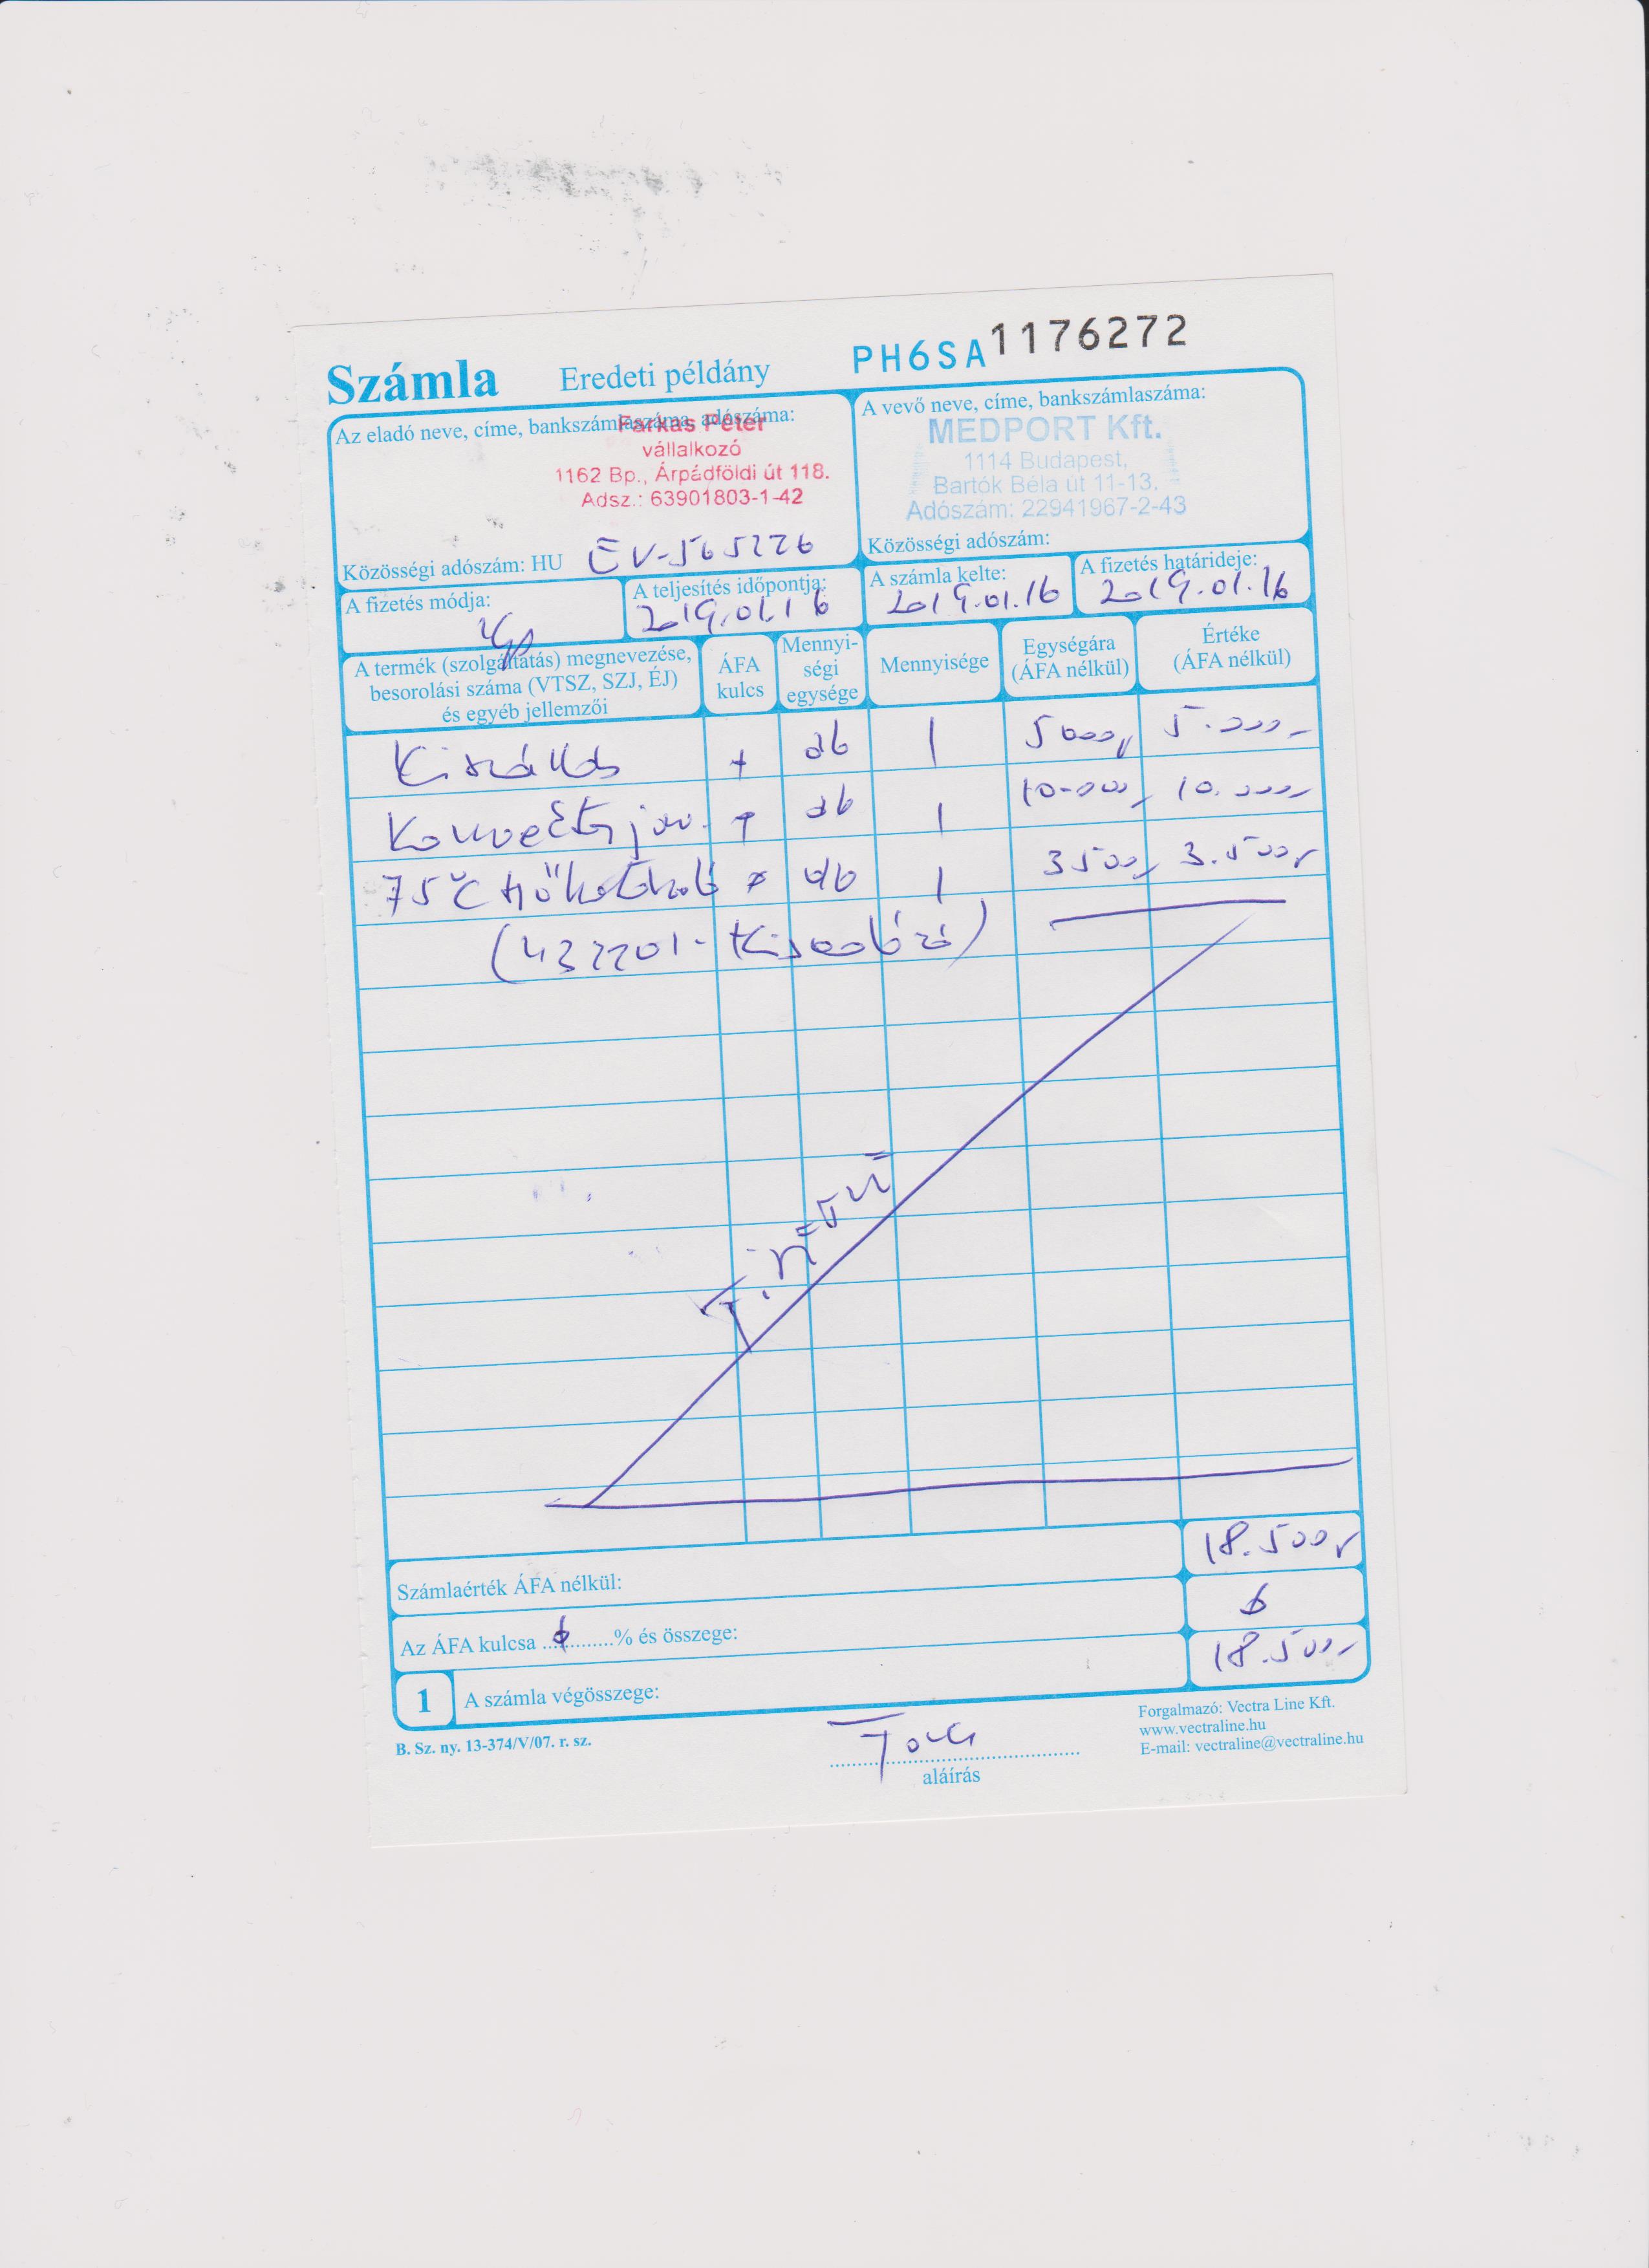 Számla Eredeti példány PH6SA 1176272
Az eladó neve, címe, bankszámlaszáma, adószáma:
Farkas Péter
vállalkozó
1162 Bp., Árpádföldi út 118.
Adsz.: 63901803-1-42
Közösségi adószám: HU EV-565226
A vevő neve, címe, bankszámlaszáma:
MEDPORT Kft.
1114 Budapest,
Bartók Béla út 11-13.
Adószám: 22941967-2-43
Közösségi adószám:
A fizetés módja:
A teljesítés időpontja: 2019.01.16
A számla kelte: 2019.01.16
A fizetés határideje: 2019.01.16
A termék (szolgáltatás) megnevezése,
besorolási száma (VTSZ, SZJ, ÉJ)
és egyéb jellemzői
ÁFA
kulcs
Mennyi-
ségi
egysége
Mennyisége
Egységára
(ÁFA nélkül)
Értéke
(ÁFA nélkül)
Kiszállás db 1 5000,- 5.000,-
db 1 10.000,- 10.000,-
75°C db 1 3500,- 3.500,-
Számlaérték ÁFA nélkül: 18.500,-
Az ÁFA kulcsa ............% és összege:
1 A számla végösszege: 18.500,-
B. Sz. ny. 13-374/V/07. r. sz.
aláírás
Forgalmazó: Vectra Line Kft.
www.vectraline.hu
E-mail: vectraline@vectraline.hu